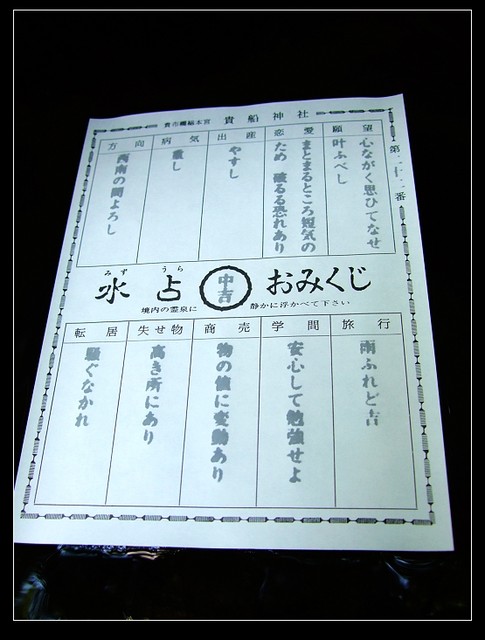 貴布禰総本宮 貴船神社
願望
心ながく思ひてなせ
叶ふべし
恋愛
まとまるところ短気の
ため 破るる恐れあり
出産
やすし
病気
重し
方向
西南の間よろし
みず うら
水占
中吉
おみくじ
境内の霊泉に
静かに浮かべて下さい
旅行
雨ふれど吉
学問
安心して勉強せよ
商売
物の値に変動あり
失せ物
高き所にあり
転居
騒ぐなかれ